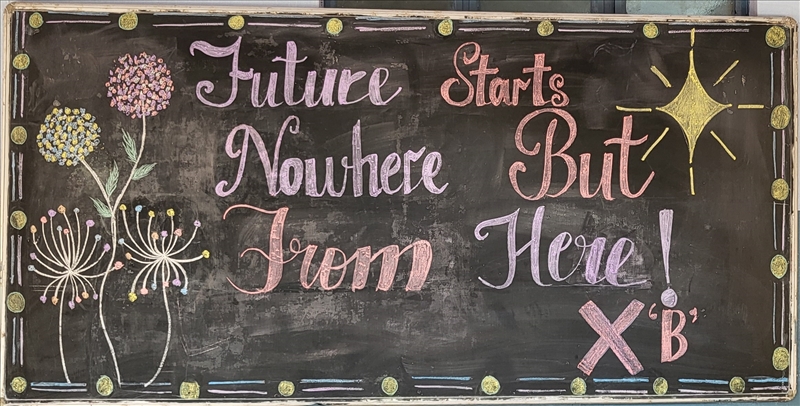 Future Starts
Nowhere But
From Here!
X 'B'